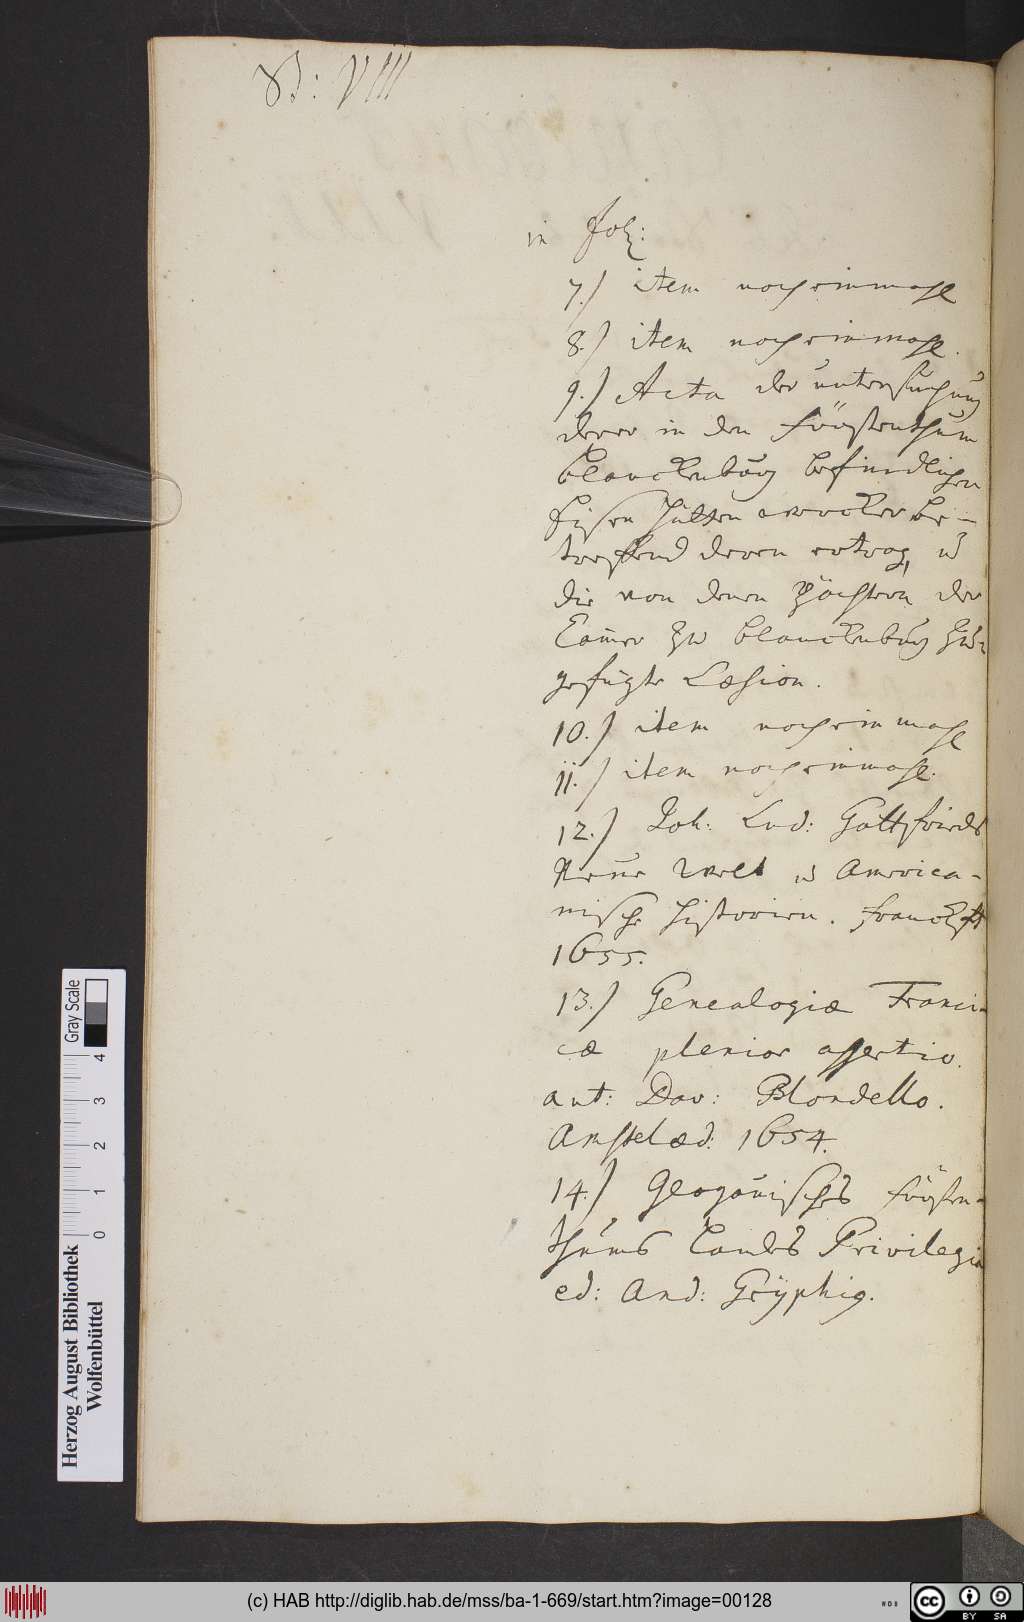 B: VIII
in fol:
7.) item noch einmahl
8.) item noch einmahl.
9.) Acta der untersuchung
derer in den Fürstenthum
Blanckenburg befindlichen
Eisen Hütten wercker be-
treffend deren ertrag, u
die von denen Pächtern der
Camer zu Blanckenburg zu-
gefügte Læsion.
10.) item noch ein mahl
11.) item noch einmahl.
12.) Joh: Lud: Gottfrieds
Neue Welt u America-
nische Historien. Franckft
1655.
13.) Genealogiæ Franci-
cæ plenior assertio.
aut: Dav: Blondello.
Amstelæd: 1654.
14.) Glogauisches Fürsten-
thums Landes Privilegia
ed: And: Gryphig.
Herzog August Bibliothek
Wolfenbüttel
0 1 2 3 4
Gray Scale
(c) HAB http://diglib.hab.de/mss/ba-1-669/start.htm?image=00128
cc BY SA